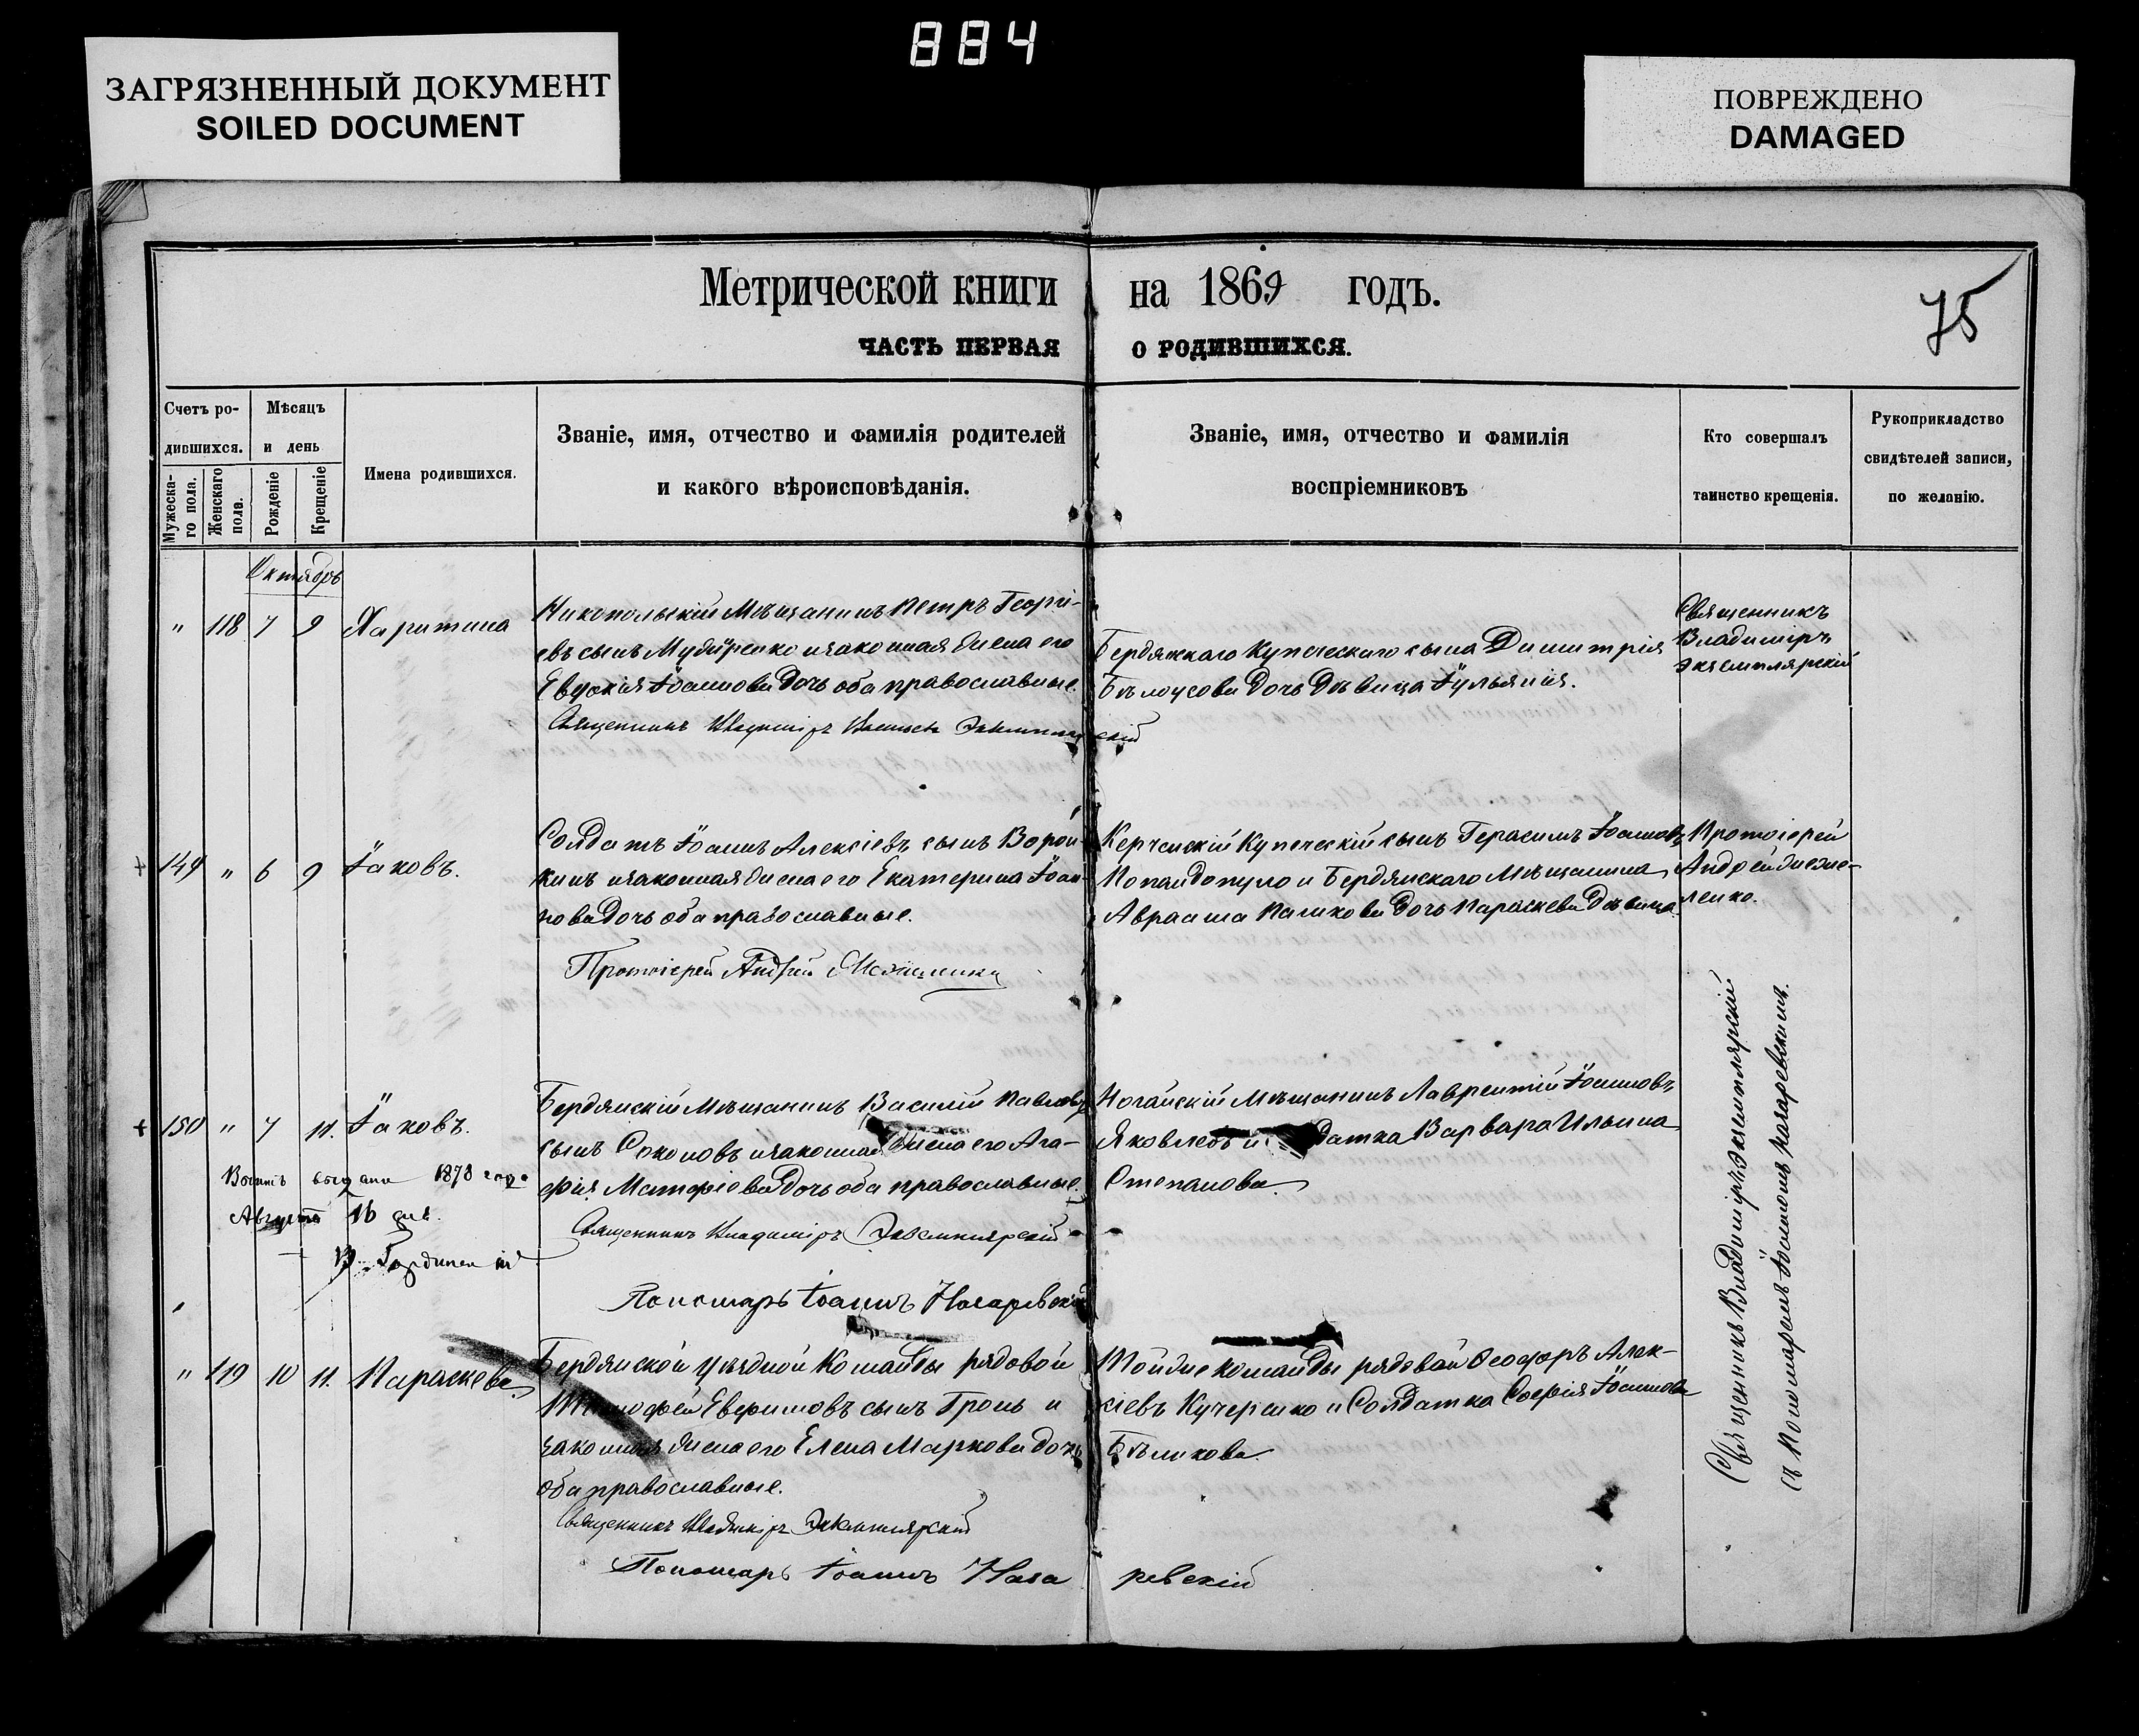 884
ЗАГРЯЗНЕННЫЙ ДОКУМЕНТ
SOILED DOCUMENT
ПОВРЕЖДЕНО
DAMAGED
Метрической книги на 1869 годъ.
75
ЧАСТЬ ПЕРВАЯ О РОДИВШИХСЯ.
Счетъ ро-
дившихся.
Мужеска-
го пола.
Женскаго
пола.
Мѣсяцъ
и день
Рожденіе
Крещеніе
Имена родившихся.
Званіе, имя, отчество и фамилія родителей
и какого вѣроисповѣданія.
Званіе, имя, отчество и фамилія
воспріемниковъ
Кто совершалъ
таинство крещенія.
Рукоприкладство
свидѣтелей записи,
по желанію.
Октябрь
" 118 7 9 Харитина
Никопольскій Мѣщанинъ Петръ Георгі-
евъ сынъ и законная жена его
Евдокія Іоаннова дочь оба православные.
Священникъ Владиміръ
Бердянскаго Купеческаго сына Димитрія
Бѣлоусова дочь Дѣвица Іульянія.
Священникъ
Владиміръ
Экземплярскій
149 " 6 9 Іаковъ.
Солдатъ Іоаннъ Алексіевъ сынъ Ворон-
кинъ и законная жена его Екатерина Іоан-
нова дочь оба православные.
Протоіерей Андрей
Керченскій Купеческій сынъ Герасимъ Іоанновъ
Попандопуло и Бердянскаго Мѣщанина
Авраама Пашкова дочь Параскева Дѣвица
Протоіерей
Андрей
ленко.
150 " 7 11. Іаковъ.
выдана 1878 года
Августа 16 дня.
Бердянскій Мѣщанинъ Василій Павловъ
сынъ Соколовъ и законная жена его Ага-
фія Матфіева дочь оба православные
Священникъ Владиміръ Экземплярскій
Пономарь Іоаннъ Назаревскій
Ногайскій Мѣщанинъ Лаврентій Іоанновъ
Яковлевъ и Варвара Ильина
Степанова.
" 119 10 11. Параскева
Бердянской уѣздной Команды рядовой
Тимофей Евфимовъ сынъ Гронь и
законная жена его Елена Маркова дочь
оба православные.
Священникъ Владиміръ Экземплярскій
Пономарь Іоаннъ Назаревскій
Той же команды рядовой Ѳеодоръ Алек-
сіевъ Кучеренко и Солдатка Софія Іоаннова
Бѣликова.
Священникъ Владиміръ Экземплярскій
съ Пономаремъ Іоанномъ Назаревскимъ.